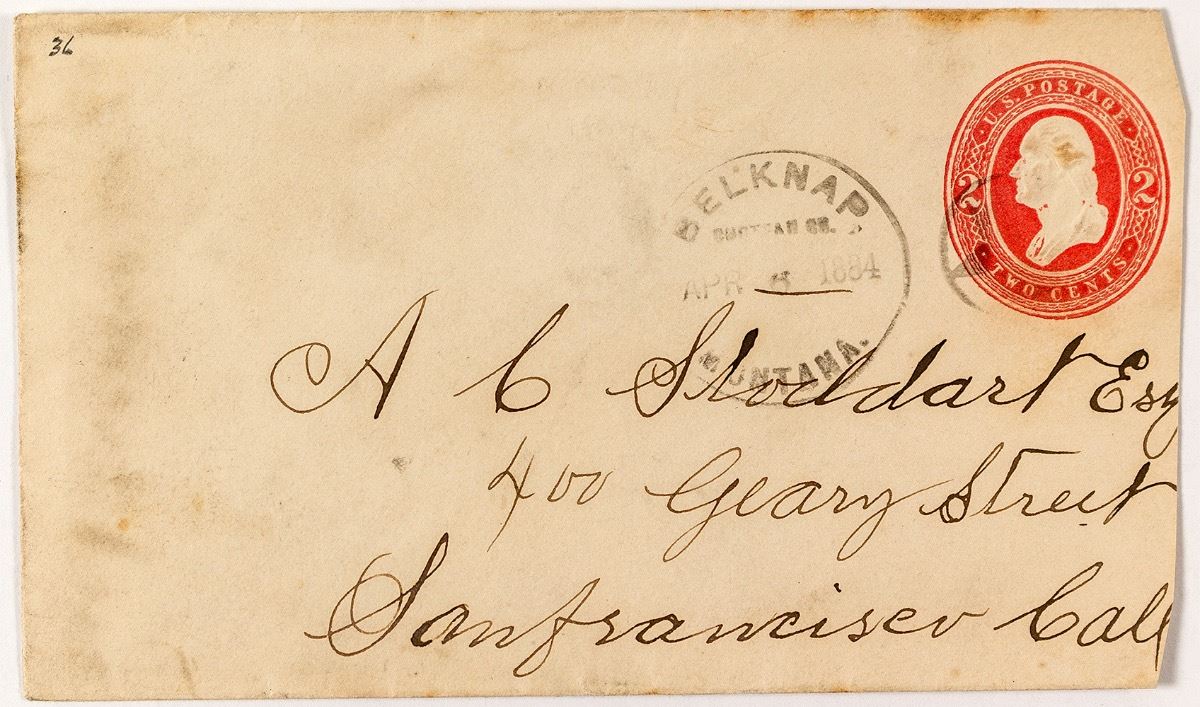 36
U.S. POSTAGE
2 2
TWO CENTS
BELKNAP
CO.
APR 1884
MONTANA.
A C Stoddart Esq
400 Geary Street
Sanfrancisco Call